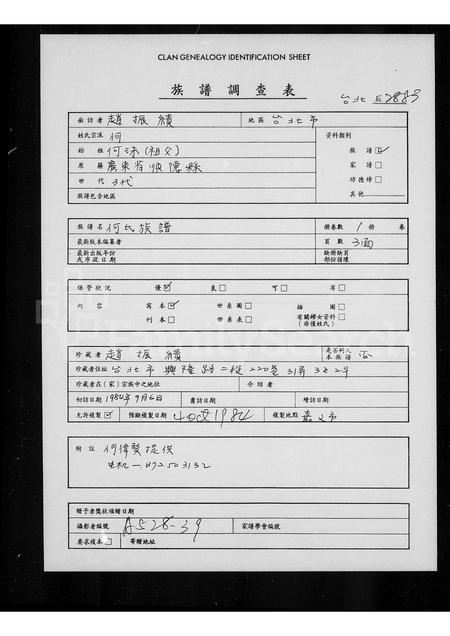 CLAN GENEALOGY IDENTIFICATION SHEET
族譜調查表
台北 2883
面訪者 趙振績 地區 台北市
姓氏宗派 何 資料類別
始祖 何球(祖父) 族譜☑
原籍 廣東省順德縣 家譜□
世代 3代 功德榜□
族譜包含地區 其他
族譜名 何氏族譜 冊卷數 1冊 卷
最新版本編纂者 頁數 3面
最新出版年份或序跋日期 缺冊缺頁部份損壞
保管狀況 優☑ 良□ 可□ 劣□
內容 寫本☑ 世系圖□ 插圖□
刊本□ 世系表□ 有關婦女資料□(非僅姓氏)
珍藏者 趙振績 是否列入本族譜 否
珍藏者住址 台北市興隆路二段220巷31弄32號
珍藏者在(家)宗族中之地位 介紹者
初訪日期 1984年9月6日 覆訪日期 續訪日期
允許複製☑ 預擬複製日期 4 Oct 1984 複製地點 嘉義市
附註 何偉賢提供
電机 一 872503132
贈予者獎狀頒贈日期
攝影者編號 A528-39 家譜學會編號
要求複本□ 寄贈地址
FamilySearch